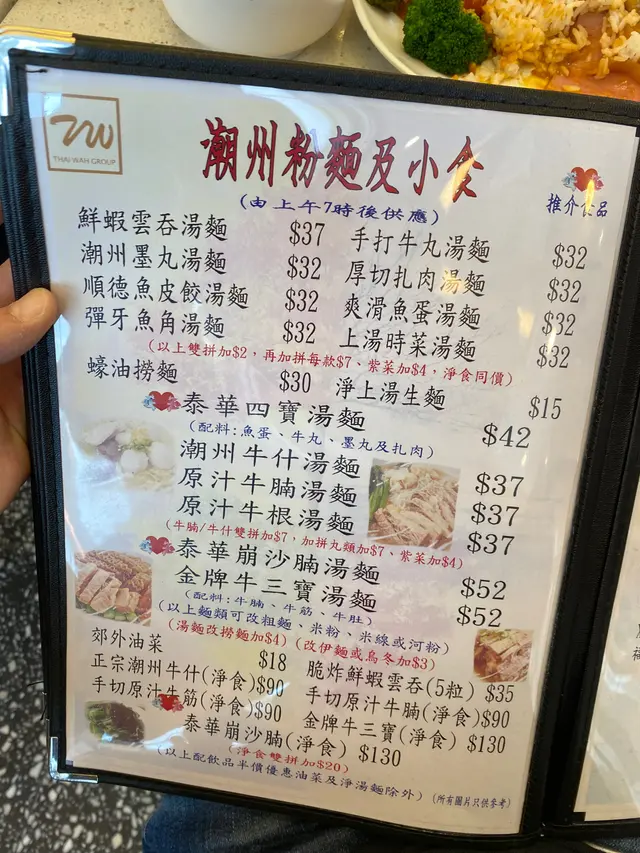 THAI WAH GROUP
潮州粉麵及小食
(由上午7時後供應)
推介食品
鮮蝦雲吞湯麵 $37 手打牛丸湯麵 $32
潮州墨丸湯麵 $32 厚切扎肉湯麵 $32
順德魚皮餃湯麵 $32 爽滑魚蛋湯麵 $32
彈牙魚角湯麵 $32 上湯時菜湯麵 $32
(以上雙拼加$2，再加拼每款$7、紫菜加$4，淨食同價)
蠔油撈麵 $30 淨上湯生麵 $15
泰華四寶湯麵 $42
(配料:魚蛋、牛丸、墨丸及扎肉)
潮州牛什湯麵 $37
原汁牛腩湯麵 $37
原汁牛根湯麵 $37
(牛腩/牛什雙拼加$7，加拼丸類加$7、紫菜加$4)
泰華崩沙腩湯麵 $52
金牌牛三寶湯麵 $52
(配料:牛腩、牛筋、牛肚)
(以上麵類可改粗麵、米粉、米線或河粉)
(湯麵改撈麵加$4) (改伊麵或烏冬加$3)
郊外油菜 $18 脆炸鮮蝦雲吞(5粒) $35
正宗潮州牛什(淨食) $90 手切原汁牛腩(淨食) $90
手切原汁牛筋(淨食) $90 金牌牛三寶(淨食) $130
泰華崩沙腩(淨食) $130
(淨食雙拼加$20)
(以上配飲品半價優惠油菜及淨湯麵除外)
(所有圖片只供參考)